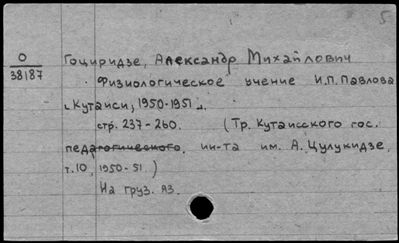 5
О
38187
Гоциридзе, Александр Михайлович
Физиологическое учение И.П. Павлова
[Кутаиси, 1950-1951].
стр. 237-260. (Тр. Кутаисского гос.
педагогического. ин-та им. А. Цулукидзе,
т.10, 1950-51.)
На груз. яз.